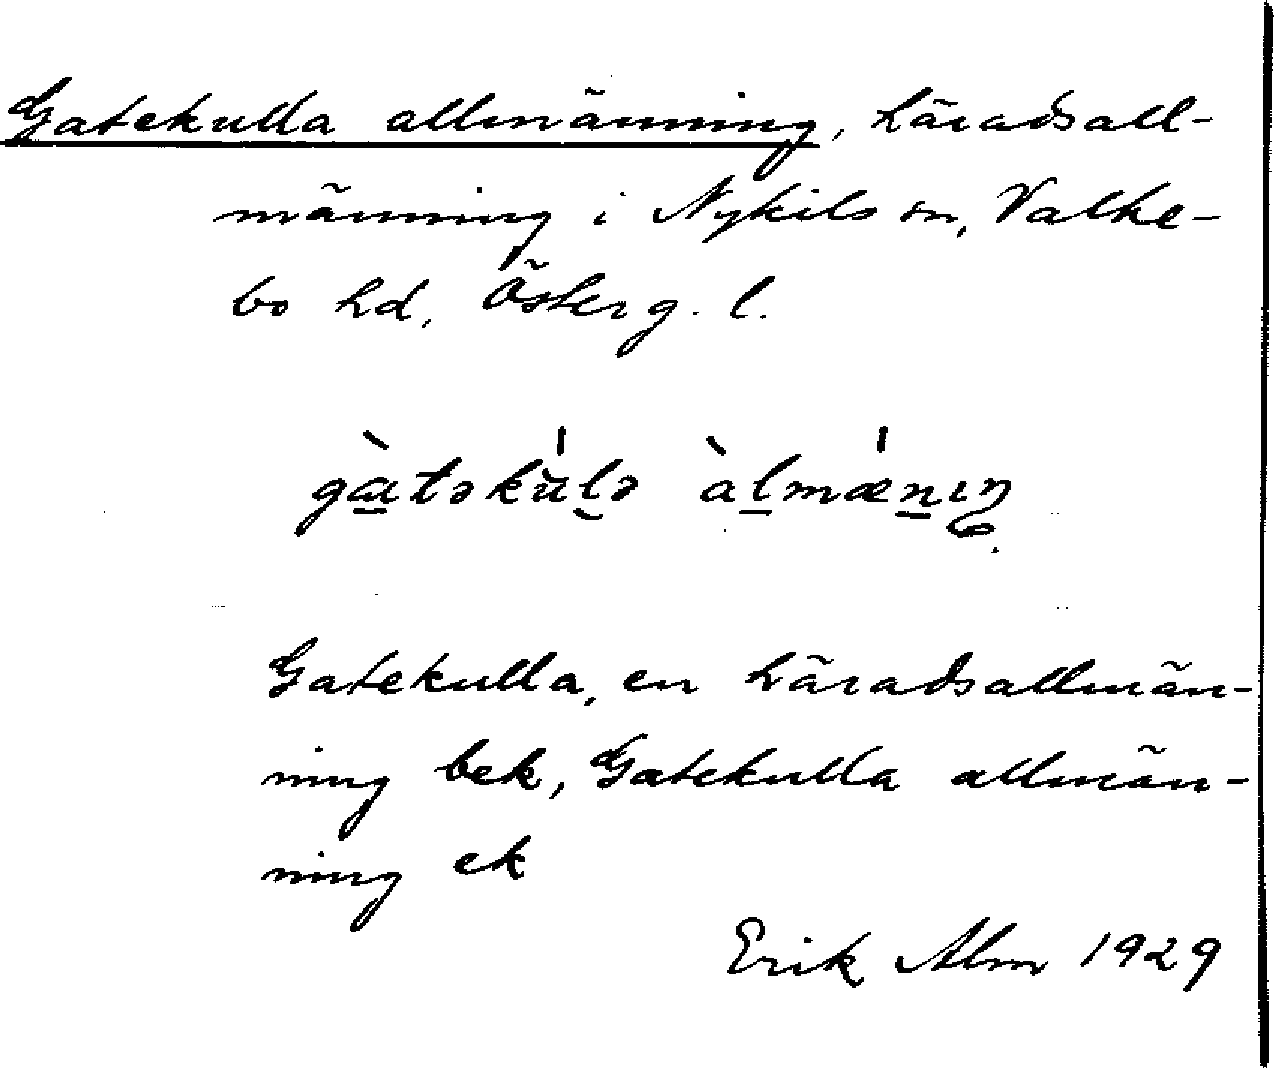 Gatekulla allmänning, häradsall-
männing i Nykils sn, Valke-
bo hd, Österg. l.
gàtəkùlə àlmænıŋ
Gatekulla, en häradsallmän-
ning bek, Gatekulla allmän-
ning ek
Erik Alm 1929